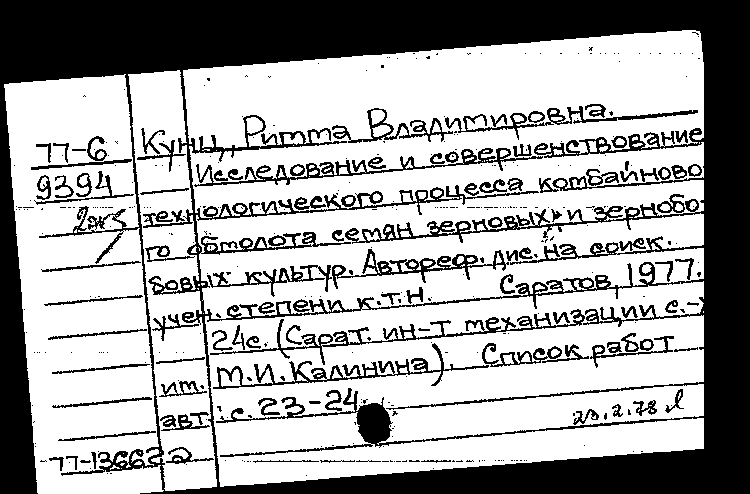 77-6
9394
2экз
Кунц, Римма Владимировна.
Исследование и совершенствование
технологического процесса комбайново-
го обмолота семян зерновых и зернобо-
бовых культур. Автореф. дис. на соиск.
учен. степени к.т.н. Саратов, 1977.
24с. (Сарат. ин-т механизации с.-х
им. М.И. Калинина). Список работ
авт.: с. 23-24
77-136622
23.2.78